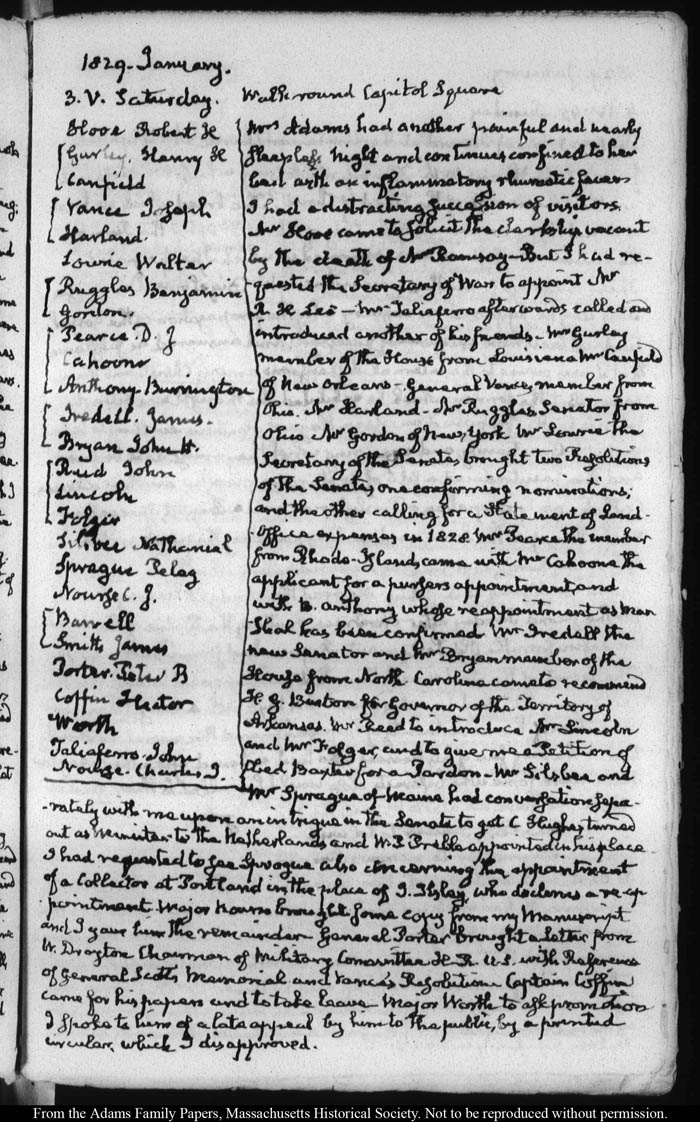 1829. January.
3. V. Saturday. Walk round Capitol Square
Hooe Robert H
Gurley, Henry H
Canfield
Vance Joseph
Harland.
Lowrie Walter
Ruggles Benjamin
Gordon.
Pearce. D. J
Cahoone
Anthony Burrington
Iredell. James.
Bryan John H.
Reed John
Lincoln
Folger
Silsbee Nathanial
Sprague Peleg
Nourse C. J.
Barrell
Smith James
Porter. Peter B
Coffin Hector
Worth
Taliaferro. John
Nourse. Charles J.
Mrs. Adams had another painful and nearly
sleepless night and continues confined to her
bed with an inflammatory rhumatic fever
I had a distracting succession of visitors.
Mr Hooe came to solicit the clerkship vacant
by the death of Mr Ramsay—But I had re-
-quested the Secretary of War to appoint Mr
R. H Lee — Mr Taliaferro afterwards called and
introduced another of his friends. Mr Gurley
member of the House from Louisiana Mr Canfield
of New Orleans — General Vance, member from
Ohio. Mr Harland — Mr Ruggles Senator from
Ohio Mr Gordon of New York Mr Lowrie the
Secretary of the Senate, brought two Resolutions
of the Senate, one confirming nominations;
and the other calling for a Statement of Land-
-Office expenses in 1828 Mr Pearce the member
from Rhode-Island, came with Mr Cahoone the
applicant for a pursers appointment, and
with B. Anthony whose reappointment as Mar
-shal has been confirmed Mr Iredell the
new Senator and Mr Bryan member of the
House from North Carolina came to recommend
H. G. Burton for Governor of the Territory of
Arkansas. Mr Reed to introduce Mr Lincoln
and Mr Folger, and to give me a Petition of
Obed Baxter for a Pardon — Mr Silsbee and
Mr Sprague of Maine had conversations sepa-
-rately with me upon an intrigue in the Senate to get C Hughes, turned
out as Minister to the Netherlands and W. P. Preble appointed in his place.
I had requested to see Sprague also concerning the appointment
of a Collector at Portland in the place of I. Ilsley, who declines a re-ap
pointment Major Nourse brought some copy from my Manuscript
and I gave him the remainder General Porter brought a Letter from
W. Drayton Chairman of Military Committee H. R. U.S. with Reference
of General Scott's Memorial and Vance's Resolution Captain Coffin
came for his papers and to take leave Major Worth to ask promotion
I spoke to him of a late appeal by him to the public, by a printed
circular, which I disapproved.
From the Adams Family Papers, Massachusetts Historical Society. Not to be reproduced without permission.